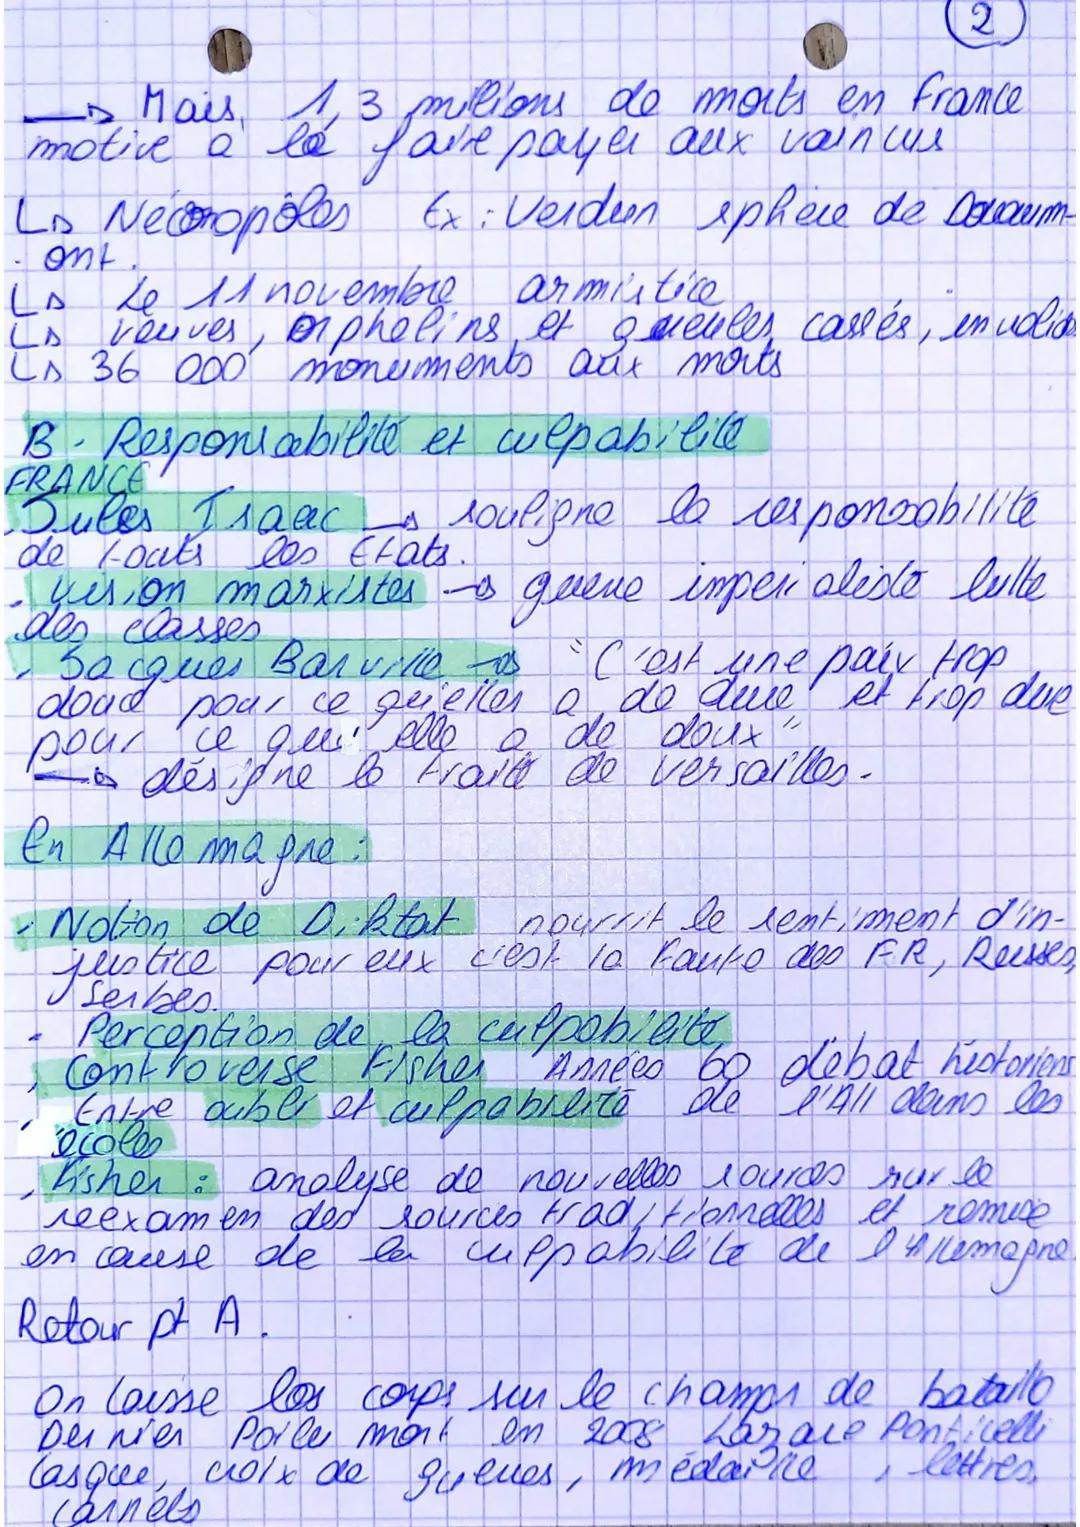 2
→ Mais, 1,3 millions de morts en France
motive a le faire payer aux vaincus
↳ Nécropôles Ex : Verdun sphère de Douaum-
ont.
↳ Le 11 novembre armistice
↳ veuves, orphelins et gueules cassés, invalides
↳ 36 000 monuments aux morts
B - Responsabilité et culpabilité
FRANCE
Jules Isaac → souligne la responsabilité
de touts les Etats.
. vision marxistes → guerre impérialiste lutte
des classes
. Jacques Bainville → "C'est une paix trop
douce pour ce qu'elles a de dure et trop dure
pour ce qui elle a de doux"
→ désigne le traité de versailles.
En Allemagne :
. Notion de Diktat nourrit le sentiment d'in-
justice pour eux c'est la faute des FR, Russes,
Serbes.
- Perception de la culpabilité
, Controverse Fisher Années 60 débat historiens
, Entre oubli et culpabilité de l'All dans les
écoles
, Fisher : analyse de nouvelles sources sur le
réexamen des sources traditionnelles et remise
en cause de la culpabilité de l'Allemagne.
Retour pt A.
On laisse les corps sur le champs de bataille
Dernier Poilu mort en 2008 Lazare Ponticelli
Casque, croix de guerres, médaille, lettres,
carnets